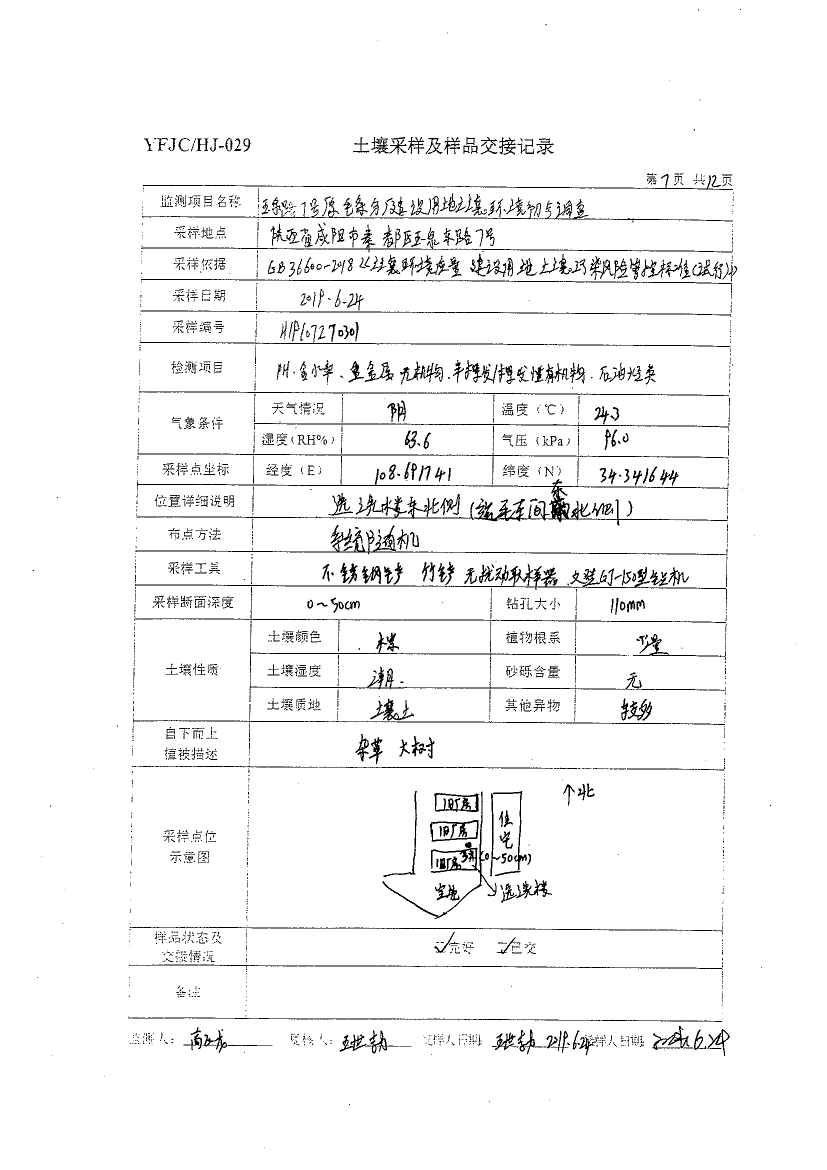 YFJC/HJ-029 土壤采样及样品交接记录
第7页 共12页
监测项目名称 玉泉路7号原毛条分厂建设用地土壤环境初步调查
采样地点 陕西省咸阳市秦都区玉泉东路7号
采样依据 GB36600-2018《土壤环境质量 建设用地土壤污染风险管控标准(试行)》
采样日期 2019.6.24
采样编号
检测项目 PH、含水率、重金属 无机物、半挥发/挥发性有机物、石油烃类
气象条件 天气情况 阴 温度(℃) 24.3
湿度(RH%) 63.6 气压(kPa) 96.0
采样点坐标 经度(E) 108.691741 纬度(N) 34.341644
位置详细说明 选洗楼东北侧
布点方法 系统随机
采样工具 不锈钢铲 竹铲 无扰动取样器 GJ-150型钻机
采样断面深度 0~50cm 钻孔大小 110mm
土壤性质 土壤颜色 棕 植物根系 少量
土壤湿度 潮 砂砾含量 无
土壤质地 壤土 其他异物 较多
自下而上
植被描述 杂草 大树
采样点位
示意图
↑北
旧厂房
旧厂房
旧厂房 (0~50cm)
住宅
空地 选洗楼
样品状态及
交接情况 ☑完好 ☑已交
备注
监测人: 复核人: 送样人日期: 2019.6.24 接样人日期: 2019.6.24